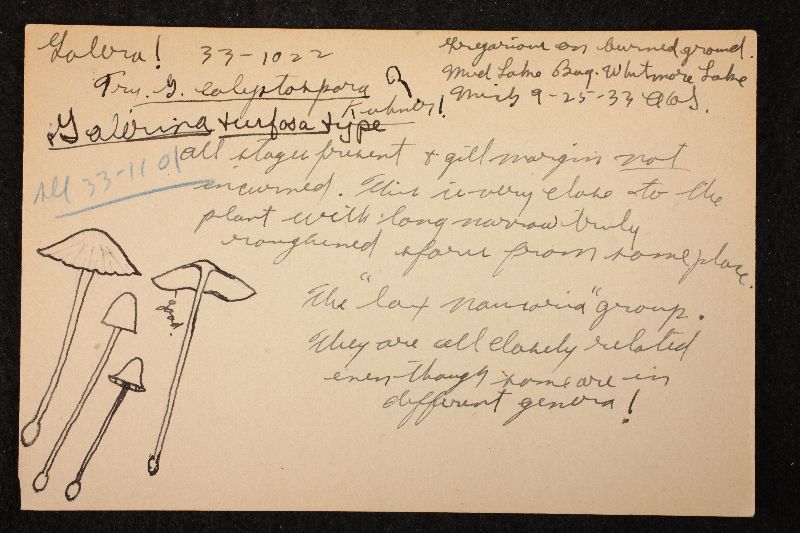 Galera! 33-1022
Gregarious on burned ground.
Mud Lake Bog. Whitmore Lake
Mich 9-25-33
Try. G. calyptospora ?
Kühner!
Galerina turfosa type
see 33-1101
all stages present & gill margin not
incurved. This is very close to the
plant with long narrow truly
roughened spores from same place.
The "lax naucoria" group.
They are all closely related
even though some are in
different genera!